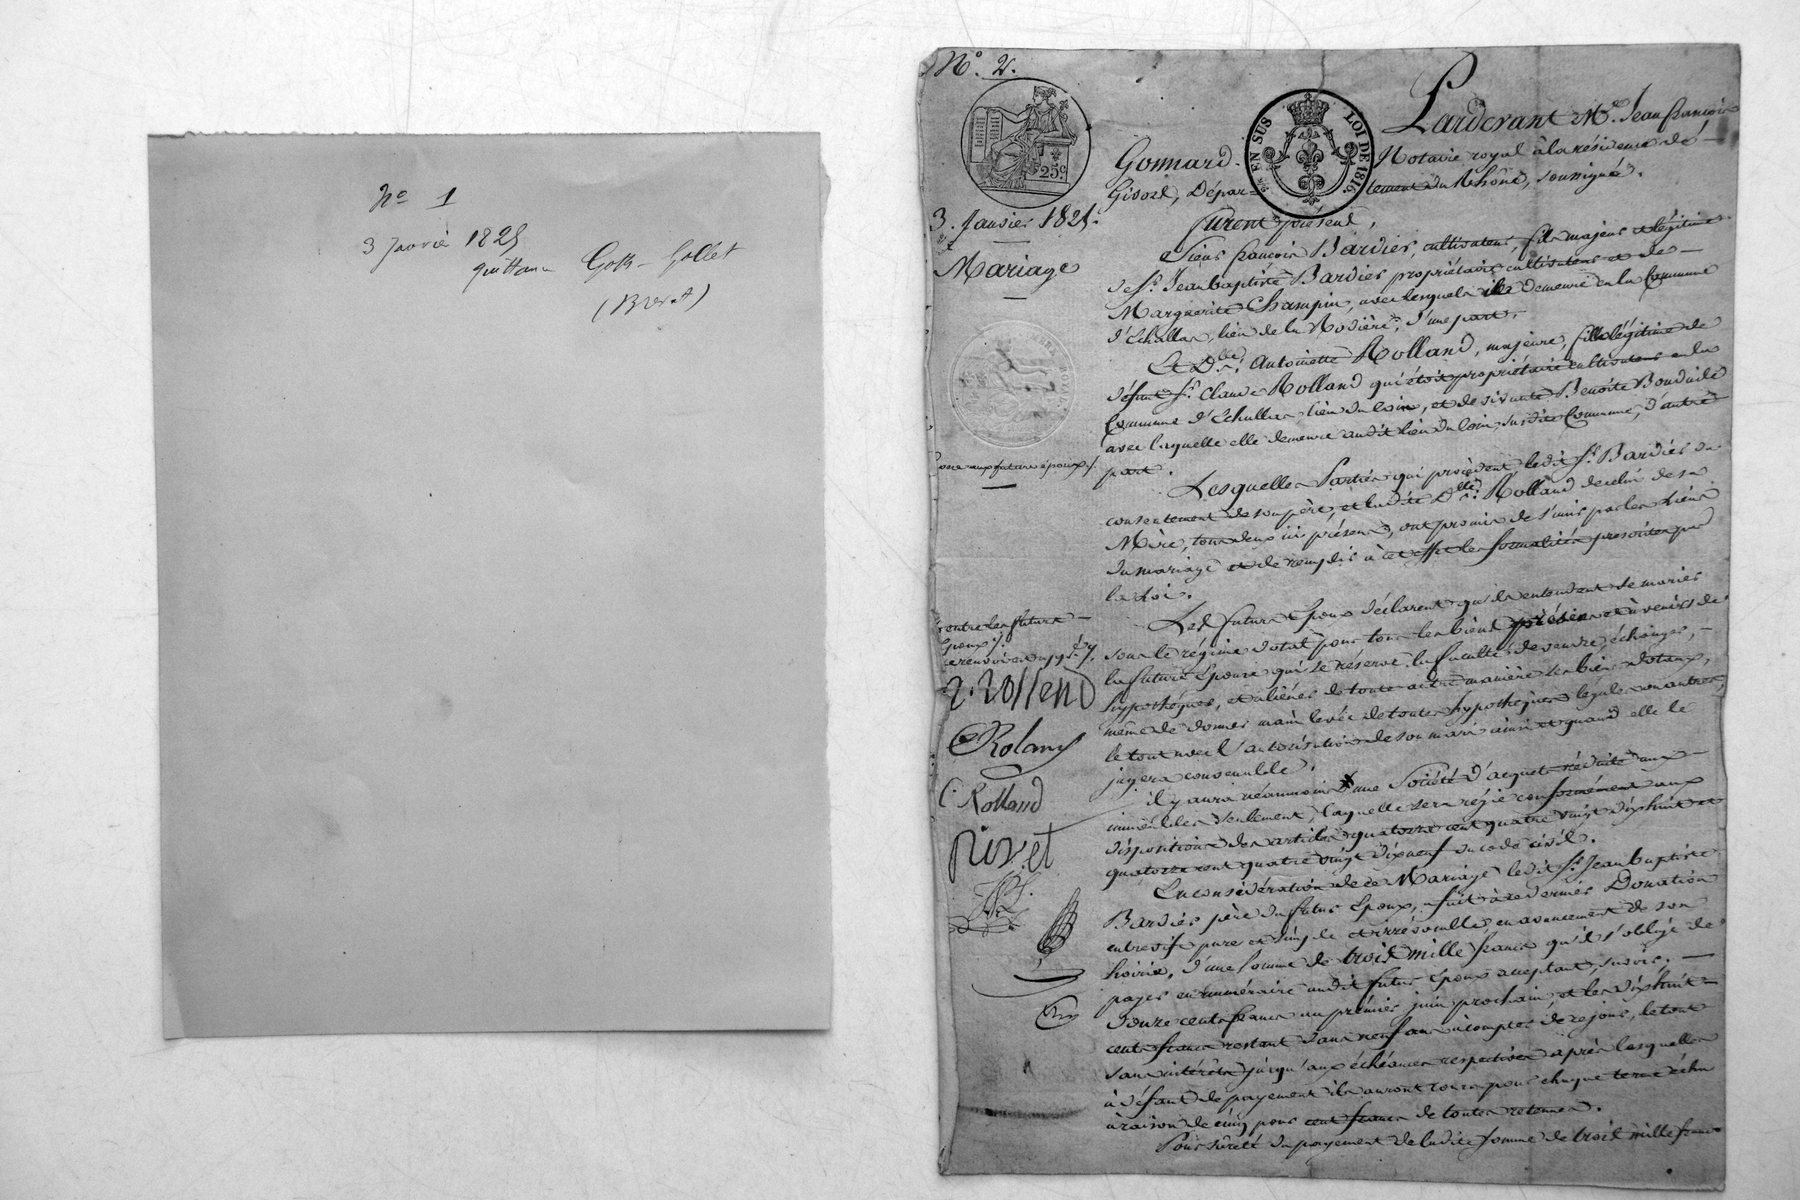 No 1
3 Janvier 1825
quittance Gollet
(Brevet)
No. 2.
25c
EN SUS LOI DE 1816.
Pardevant Me. Jean françois
Gonnard Notaire royal à la résidence de
Givors, Département du Rhône, soussigné.
3. Janvier 1825.
furent présent,
Mariage
Sieur françois Bardier, cultivateur, fils majeur & légitime
de Sr. Jean baptiste Bardier propriétaire cultivateur et de
Marguerite Champin, avec lesquels il demeure en la Commune
d'Echallas, lieu de la Rodière, d'une part.
Et Dlle. Antoinette Rolland, majeure, fille légitime de
défunt Sr. Claude Rolland qui étoit propriétaire cultivateur en la
Commune d'Echallas, lieu du loin, et de vivante Benoite
avec laquelle elle demeure audit lieu du loin, susdite Commune, d'autre
part.
Lesquelles Parties qui procèdent ledit Sr. Bardier du
consentement de son père, et ladite Dlle. Rolland de celui de sa
Mère, tous deux ici présens, ont promis de s'unir par les Liens
du mariage et de remplir à cet effet les formalités prescrites par
la Loi.
Les futurs Epoux déclarent qu'ils entendent se marier
sous le régime dotal pour tous les biens présens et à venir de
la future Epouse qui se réserve la faculté de vendre, échanger,
hypothéquer, et aliéner de toute autre manière ses biens dotaux,
même de donner main levée de toutes hypothèques légales ou autres,
le tout avec l'autorisation de son mari ainsi et quand elle le
jugera convenable.
il y aura néanmoins une Société d'acquets réduite aux
immeubles seulement, laquelle sera régie conformément aux
dispositions des articles quatorze cent quatre vingt dixhuit et
quatorze cent quatre vingt dixneuf du code civil.
En considération de ce Mariage ledit Sr. Jean baptiste
Bardier père du futur Epoux, a fait à ce dernier Donation
entrevifs pure et simple et irrévocable, en avancement de son
hoirie, d'une somme de trois mille francs qu'il s'oblige de
payer en numéraire audit futur Epoux acceptant, savoir,
douze cents francs au premier juin prochain, et les dixhuit
cents francs restant dans neuf ans à compter de ce jour, le tout
sans intérêts jusqu'aux échéances respectives après lesquelles
à défaut de payement ils auront cours pour chaque terme échu
à raison de cinq pour cent francs de toutes retenues.
Pour sûreté du payement de ladite somme de trois mille francs
entre les futurs
Epoux
Roland
C. Rolland
Rivet